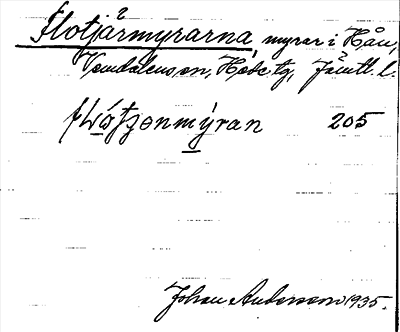 Flotjärmyrarna, myrar i Hån,
Vemdalens sn, Hede tg, Jämtl. l.
flωátʒenmy̲ran 205
Johan Andersson 1935.